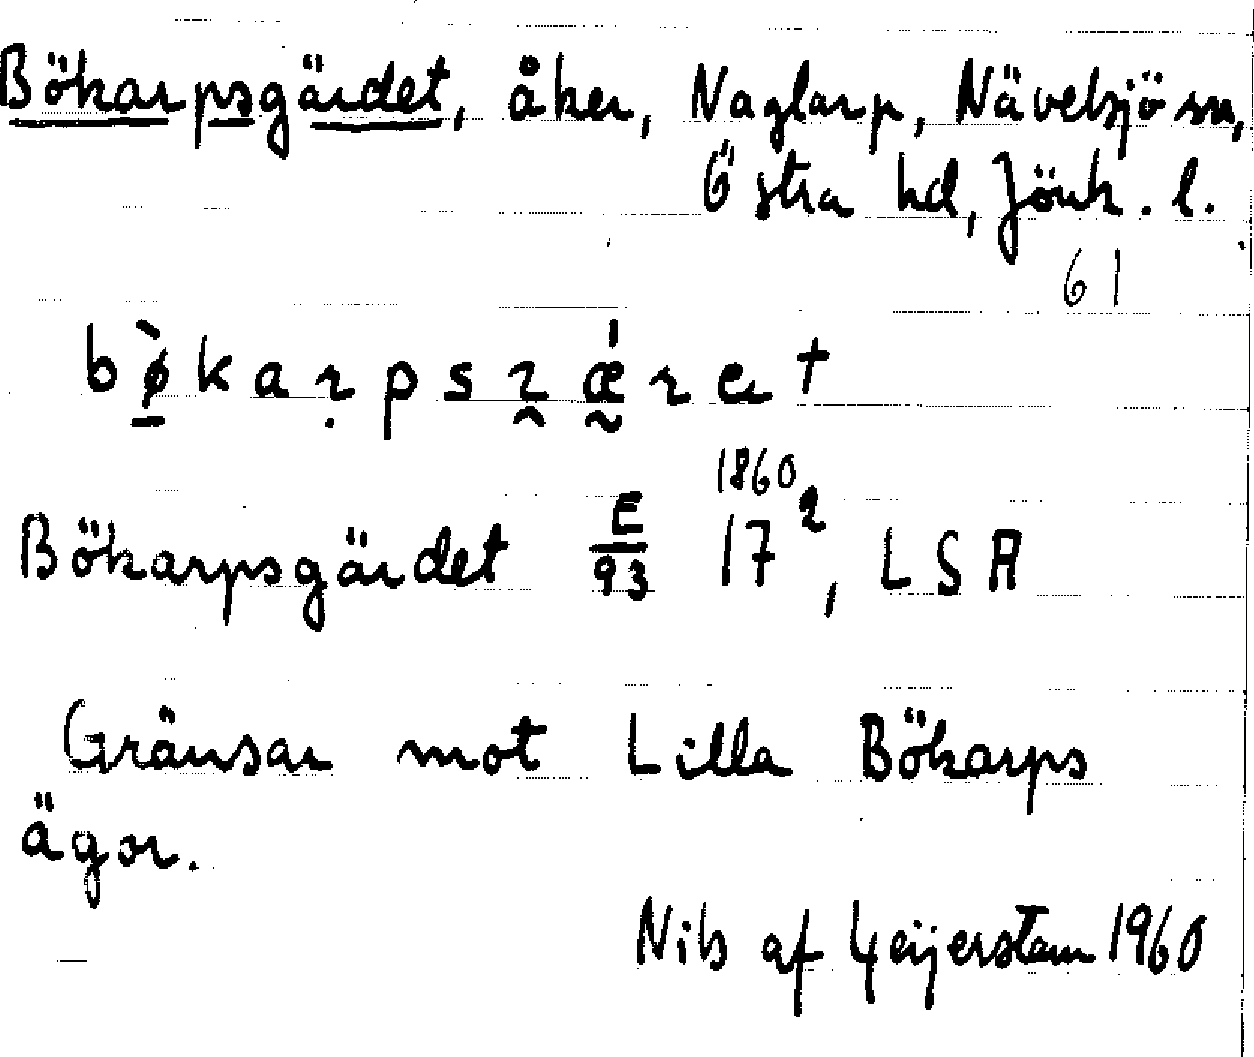 Bökarpsgärdet, åker, Naglarp, Nävelsjö sn,
Östra hd, Jönk. l.
61
Bökarpsgärdet E/93 17² 1860, LSA
Gränsar mot Lilla Bökarps
ägor.
Nils af Geijerstam 1960